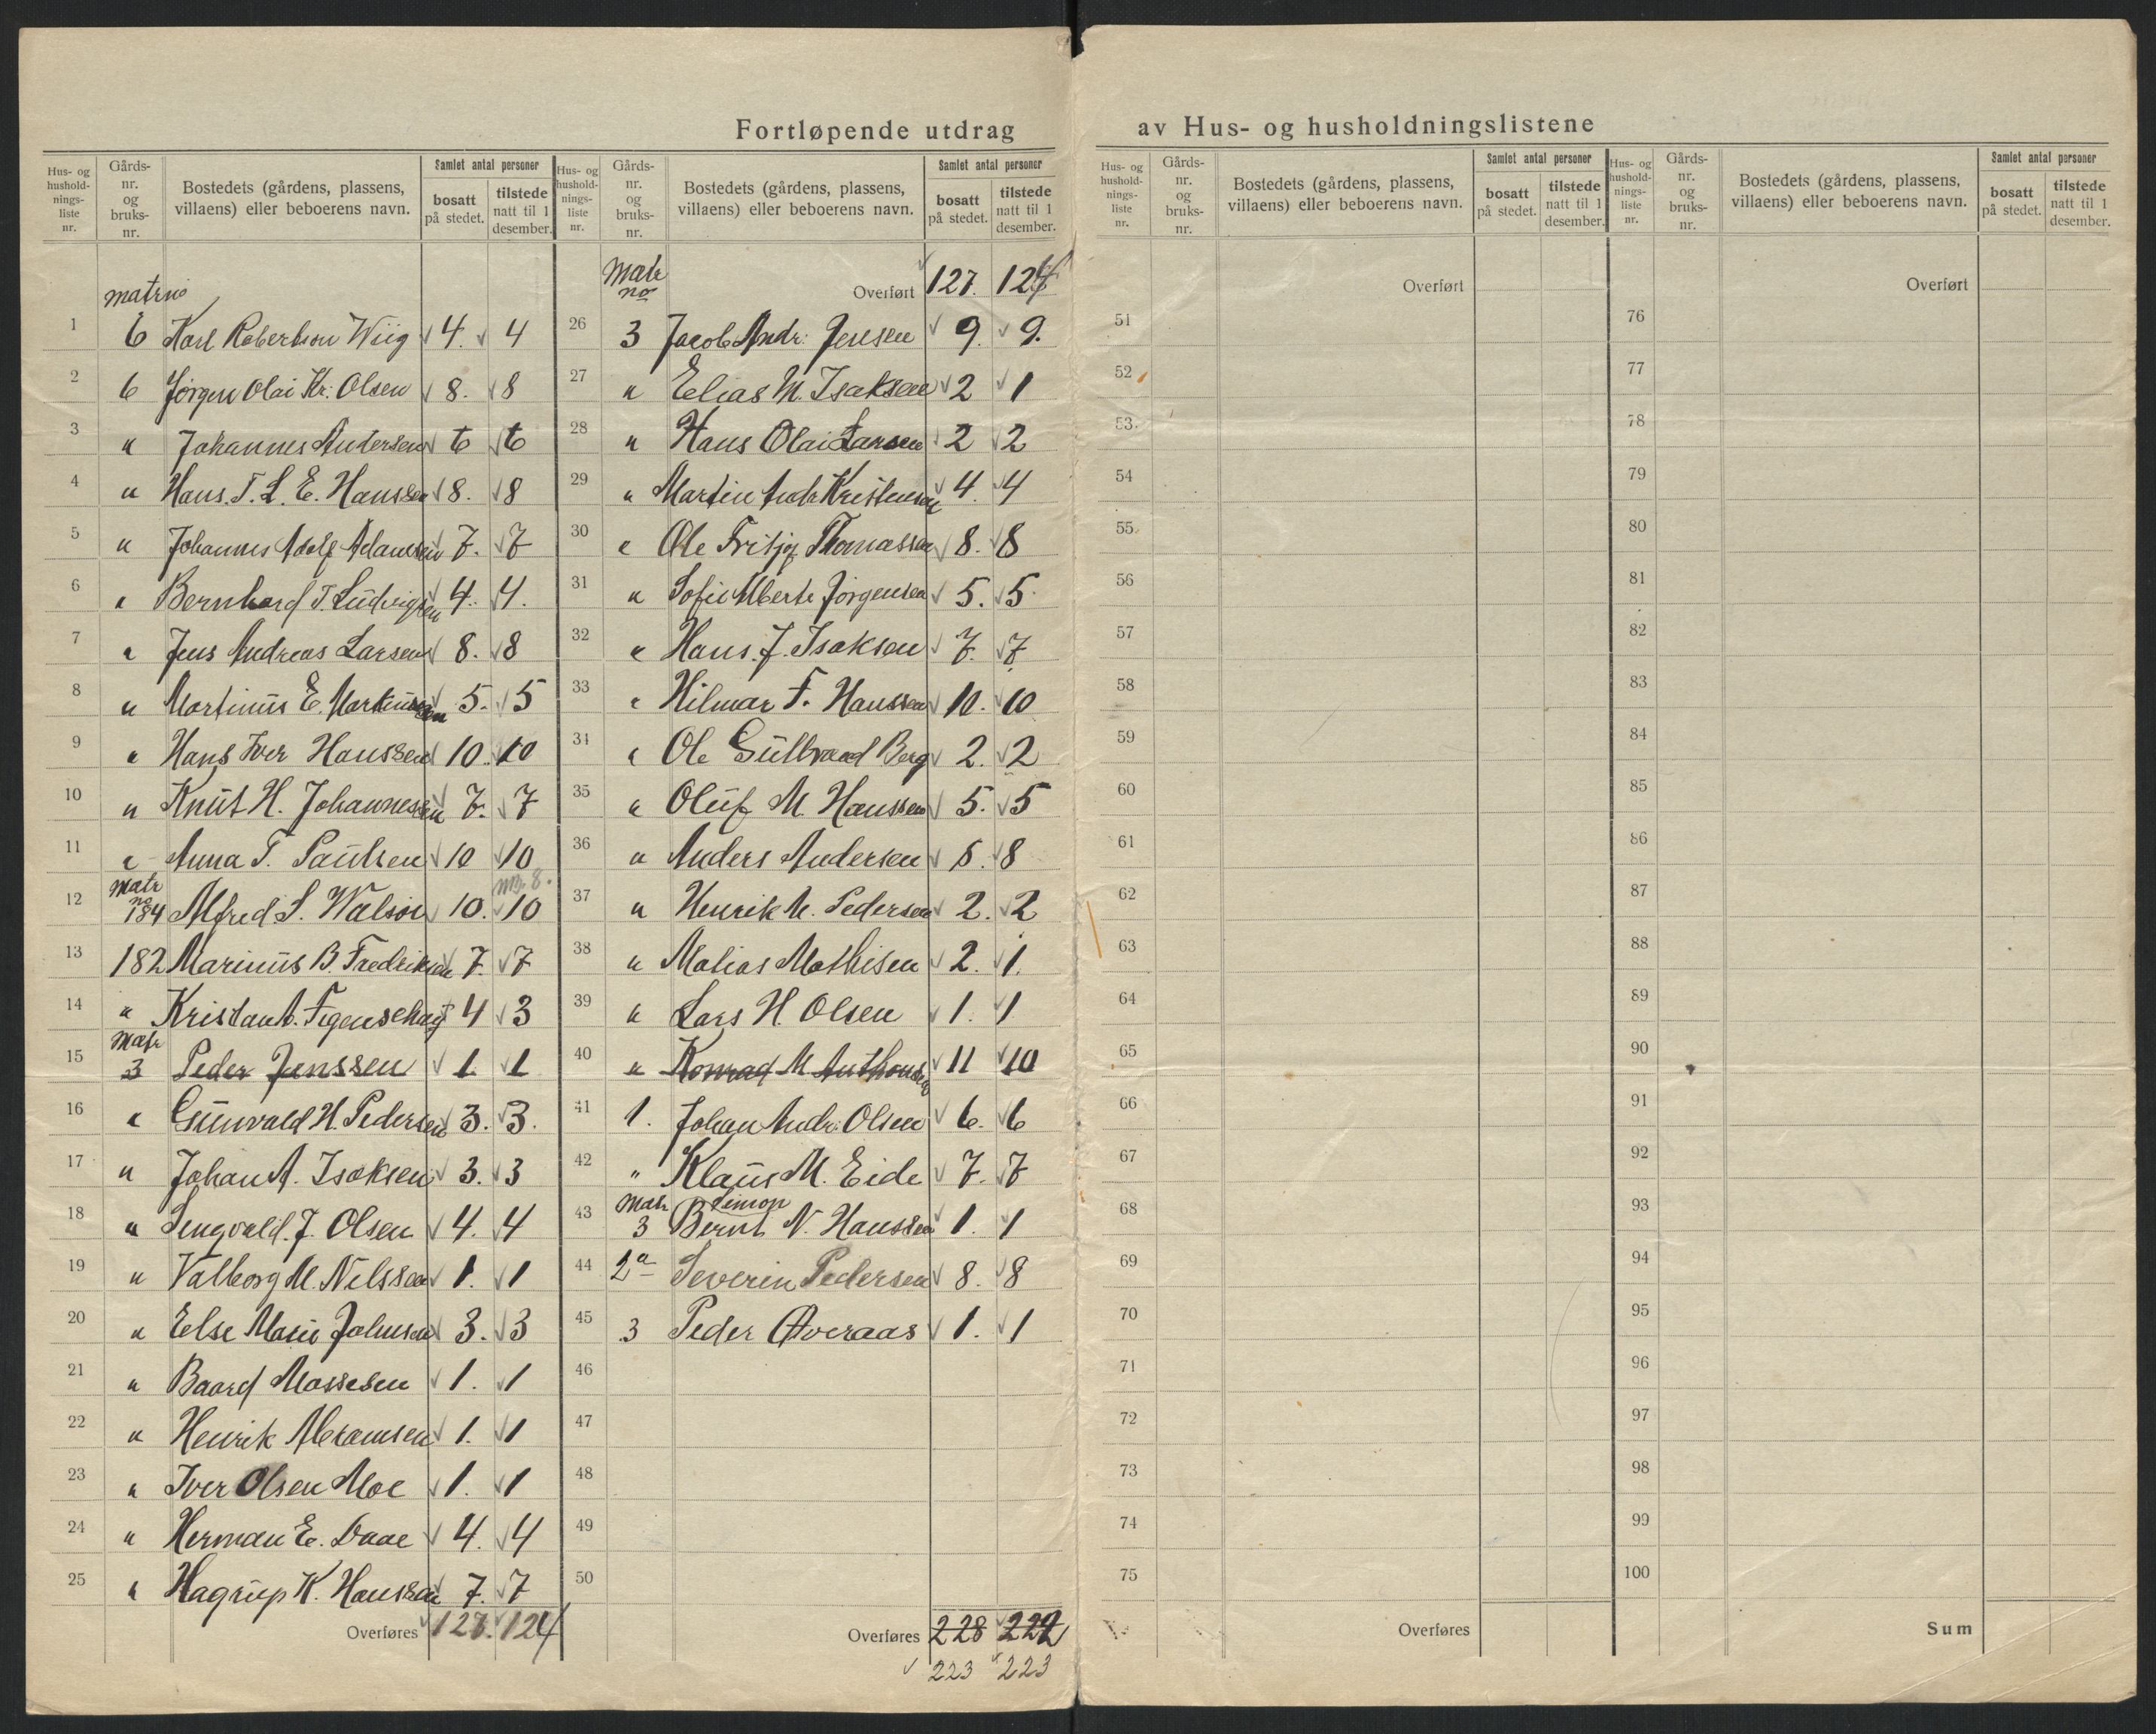 Fortløpende utdrag av Hus- og husholdningslistene
Hus- og hushold-nings-liste nr. Gårds-nr. og bruks-nr. Bostedets (gårdens, plassens, villaens) eller beboerens navn. Samlet antal personer bosatt på stedet. tilstede natt til 1 desember.
matr no
1 6 Karl Robertson Wiig 4. 4
2 6 Jørgen Olai Kr: Olsen 8. 8
3 " Johannes Andersen 6 6
4 " Hans. T. L. E. Hanssen 8. 8
5 " Johannes Adolf 7. 7
6 " Bernhard T. Ludvigsen 4. 4.
7 " Jens Andreas Larsen 8. 8
8 " Martinus E. Martinussen 5. 5
9 " Hans Iver Hanssen 10. 10
10 " Knut H. Johannessen 7. 7
11 " Anna T. Paulsen 10 10
Matr no 8.
12 184 Alfred S. Walsøe 10. 10
13 182 Marinus B. Fredriksen 7. 7
14 " Kristian A. Figenschau 4 3
Matr
15 3 Peder Jenssen 1. 1
16 " Gunvald H. Pedersen 3. 3.
17 " Johan A. Isaksen 3. 3
18 " J. Olsen 4. 4
19 " Valborg M. Nilssen 1. 1
20 " Else Marie Johnsen 3. 3
21 " Baard Mossesen 1. 1
22 " Henrik Abramsen 1. 1
23 " Iver Olsen Moe 1. 1
24 " Herman E. Daae 4. 4
25 " Hagrup K. Hanssen 7. 7
Overføres 127. 124
Hus- og hushold-nings-liste nr. Gårds-nr. og bruks-nr. Bostedets (gårdens, plassens, villaens) eller beboerens navn. Samlet antal personer bosatt på stedet. tilstede natt til 1 desember.
Matr no Overført 127. 124
26 3 Jacob Andr: Jensen 9. 9.
27 " Elias M. Isaksen 2 1
28 " Hans Olai Larsen 2 2
29 " Martin Andr Kristensen 4. 4
30 " Ole Fritjof Thomassen 8. 8
31 " Sofie Alberte Jørgensen 5. 5
32 " Hans. J. Isaksen 7. 7.
33 " Hilmar F. Hanssen 10. 10
34 " Ole Gullbrand Berg 2. 2
35 " Oluf M. Hanssen 5. 5
36 " Anders Andersen 8. 8
37 " Henrik M. Pedersen 2. 2
38 " Matias Mathisen 2. 1.
39 " Lars H. Olsen 1. 1
40 " Konrad M Anthonsen 11 10
41 1. Johan Andr: Olsen 6. 6
42 " Klaus M. Eide 7. 7
Matr Simon
43 3 Bernt N. Hanssen 1. 1
44 2a Severin Pedersen 8. 8
45 3 Peder Øveraas 1. 1
46
47
48
49
50
Overføres 228 222
223 223
Hus- og hushold-nings-liste nr. Gårds-nr. og bruks-nr. Bostedets (gårdens, plassens, villaens) eller beboerens navn. Samlet antal personer bosatt på stedet. tilstede natt til 1 desember.
Overført
51
52
53.
54
55
56
57
58
59
60
61
62
63
64
65
66
67
68
69
70
71
72
73
74
75
Overføres
Hus- og hushold-nings-liste nr. Gårds-nr. og bruks-nr. Bostedets (gårdens, plassens, villaens) eller beboerens navn. Samlet antal personer bosatt på stedet. tilstede natt til 1 desember.
Overført
76
77
78
79
80
81
82
83
84
85
86
87
88
89
90
91
92
93
94
95
96
97
98
99
100
Sum